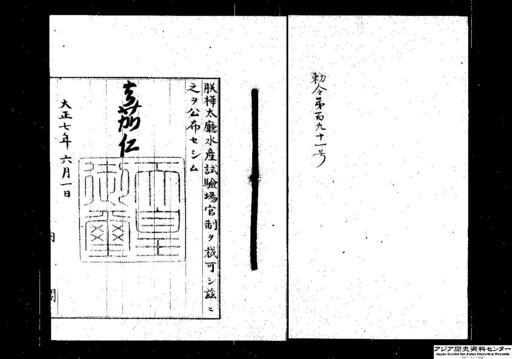 勅令第百九十一号
朕樺太廳水産試驗場官制ヲ裁可シ茲ニ
之ヲ公布セシム
嘉仁
天皇
御璽
大正七年六月一日
内閣
アジア歴史資料センター
Japan Center for Asian Historical Records